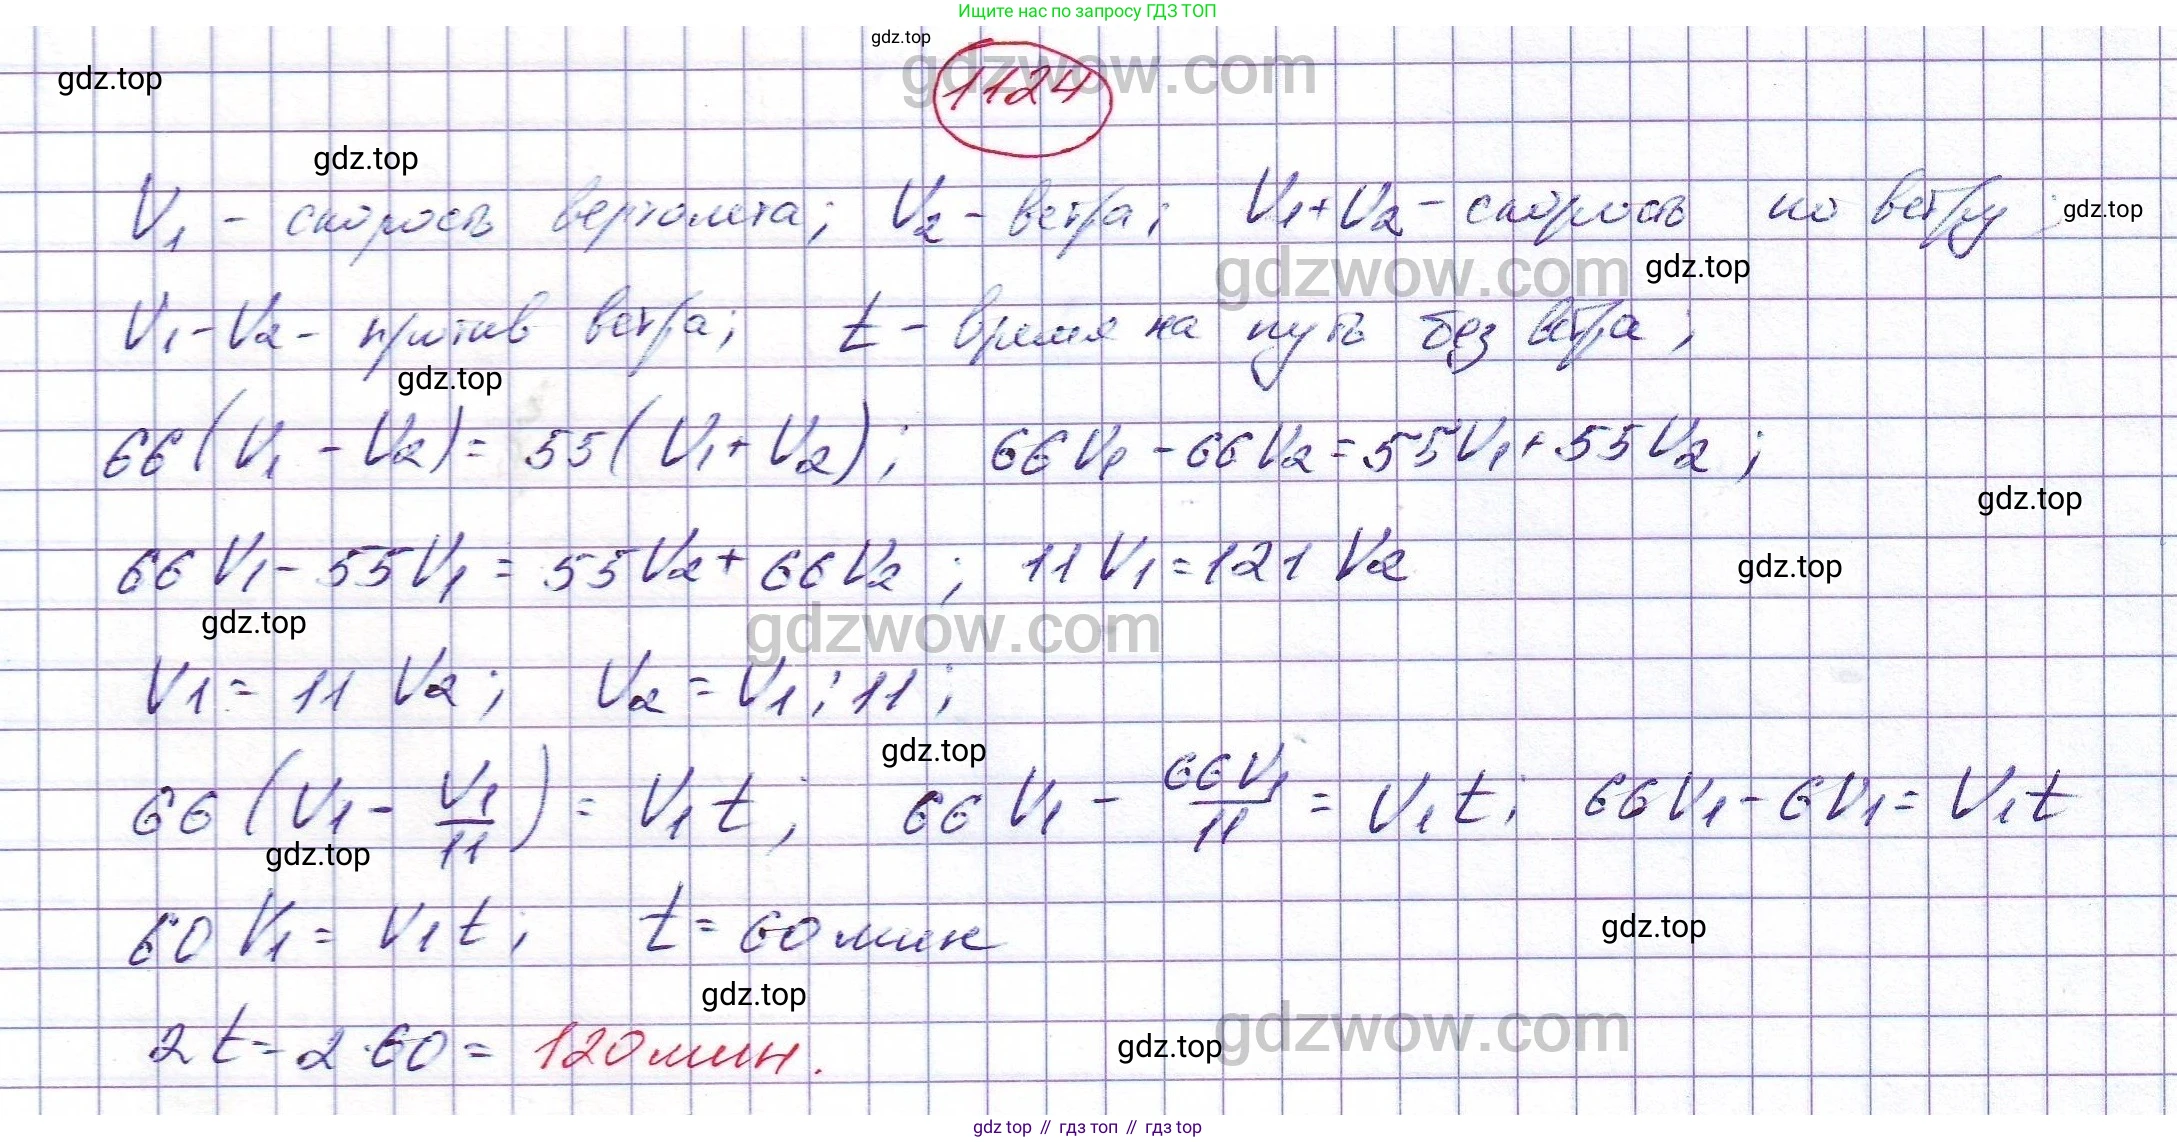 Ищите нас по запросу ГДЗ ТОП
gdz.top
gdzwow.com
1124
gdz.top
gdz.top
V₁ - скорость вертолета; V₂ - ветра; V₁+V₂ - скорость по ветру;
gdz.top
gdzwow.com
gdz.top
V₁-V₂ - против ветра; t - время на путь без ветра;
gdz.top
66(V₁ - V₂) = 55(V₁ + V₂); 66V₁ - 66V₂ = 55V₁ + 55V₂;
gdz.top
66V₁ - 55V₁ = 55V₂ + 66V₂; 11V₁ = 121V₂
gdz.top
gdz.top
gdzwow.com
V₁ = 11V₂; V₂ = V₁:11;
gdz.top
66(V₁ - V₁/11) = V₁t; 66V₁ - 66V₁/11 = V₁t; 66V₁ - 6V₁ = V₁t
gdz.top
60V₁ = V₁t; t = 60 мин
gdz.top
gdz.top
gdzwow.com
2t = 2·60 = 120 мин.
gdz.top
gdz top // гдз топ // гдз top